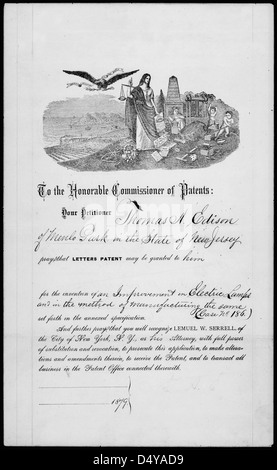 To the Honorable Commissioner of Patents:
Your Petitioner Thomas A Edison
of Menlo Park in the State of New Jersey
prays that LETTERS PATENT may be granted to him
for the invention of an Improvement in Electric Lamps
and in the method of manufacturing the same
(Case No 186.)
set forth in the annexed specification.
And further prays that you will recognize LEMUEL W. SERRELL, of
the City of New York, N. Y., as his Attorney, with full power
of substitution and revocation, to prosecute this application, to make altera-
tions and amendments therein, to receive the Patent, and to transact all
business in the Patent Office connected therewith.
1879
alamy
Image ID: D4YAD9
www.alamy.com